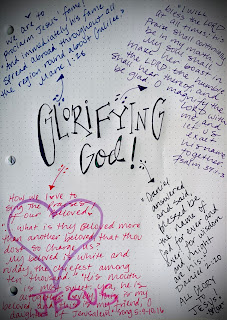 we are to
proclaim Jesus' fame!
"And immediately his fame
spread abroad throughout all
the region round about Galilee."
Mark 1:28
I will
bless the LORD
at all times: his
praise shall continually
be in my mouth.
My soul shall
make her boast in
the LORD: the humble
shall hear thereof, and
be glad. O magnify
the LORD
with me
and
let us
exalt
his
name
together.
Psalm 34:1-3
GLORIFYING
God!
How we love to
sing the praises
of our beloved.
What is thy beloved more
than another beloved that thou
dost so charge us?
My beloved is white and
ruddy, the chiefest among
ten thousand. His mouth
is most sweet: yea, he is
altogether
beloved, and this is my friend, O
daughters of Jerusalem." Song 5:9-10, 16
JESUS
"Daniel
answered
and said,
Blessed be
the name of
God for ever
and ever: for
wisdom
and might
are his
Daniel 2:20
ALL GLORY
TO
JESUS